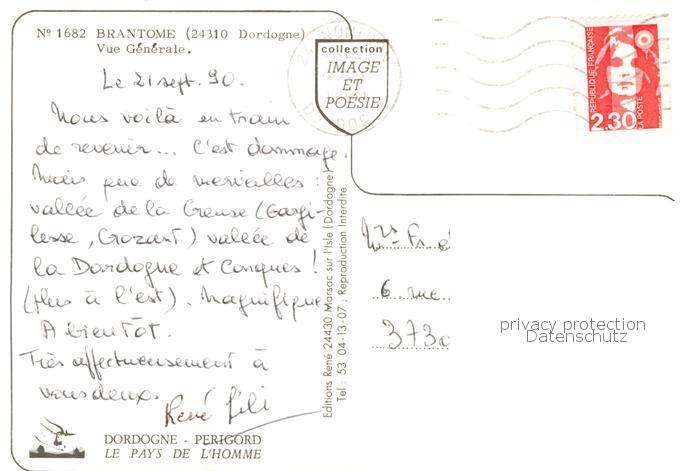 Nº 1682 BRANTOME (24310 Dordogne)
Vue Générale.
collection
IMAGE
ET
POÉSIE
RÉPUBLIQUE FRANÇAISE
2,30
LA POSTE
Le 21 sept. 90.
Nous voilà en train
de revenir... C'est dommage.
Mais que de merveilles :
vallée de la Creuse (Gargi-
lesse, Crozant) vallée de
la Dordogne et Conques !
(plus à l'est). Magnifique
A bientôt.
Très affectueusement à
vous deux.
René
Editions René 24430 Marsac sur l'Isle (Dordogne)
Tel : 53 04-13-07 ; Reproduction Interdite
6 rue
3730
privacy protection
Datenschutz
DORDOGNE - PERIGORD
LE PAYS DE L'HOMME